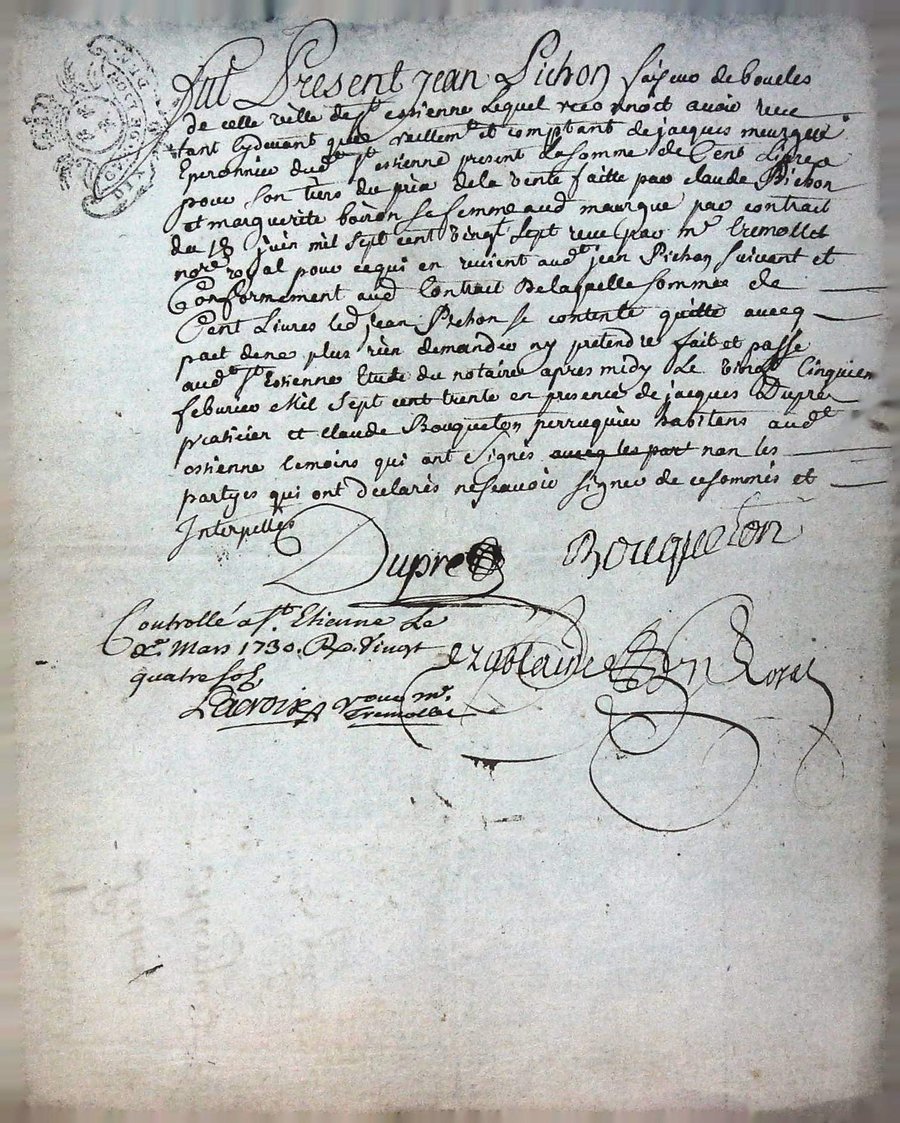 Fut Present jean Pichon faizeur de boucles
de cette ville de st estienne lequel reconnoit avoir receu
tant cydevant que reellemt et comptant de jacques
Eperonnier dudt st estienne present la somme de Cent Livres
pour son tiers du prix de la vente faitte par claude Pichon
et marguerite boiron sa femme aud meurgue par contrait
du 18 juin mil sept cent vingt sept receu par mr Tremollet
nore royal pour ce qui en revient audt jean Pichon suivant et
Conformement aud Contrait De laquelle somme de
Cent Livres led jean Pichon se contente quitte avecq
pact de ne plus rien demander ny pretendre fait et passé
audt st Estienne Etude du notaire apres midy Le vingt Cinquiem
febvrier Mil sept cent trente en presence de jacques Dupré
praticier et claude Bouqueton perruquier habitens audt
estienne temoins qui ont signés avecq les part non les
partyes qui ont declarés ne scavoir signer de ce sommés et
Interpellés
Dupré Bouqueton
Controllé a St. Etienne Le
Mars 1730. Rx. Vingt
quatre sols
Lacroix pour mr. Tremollet
Royal